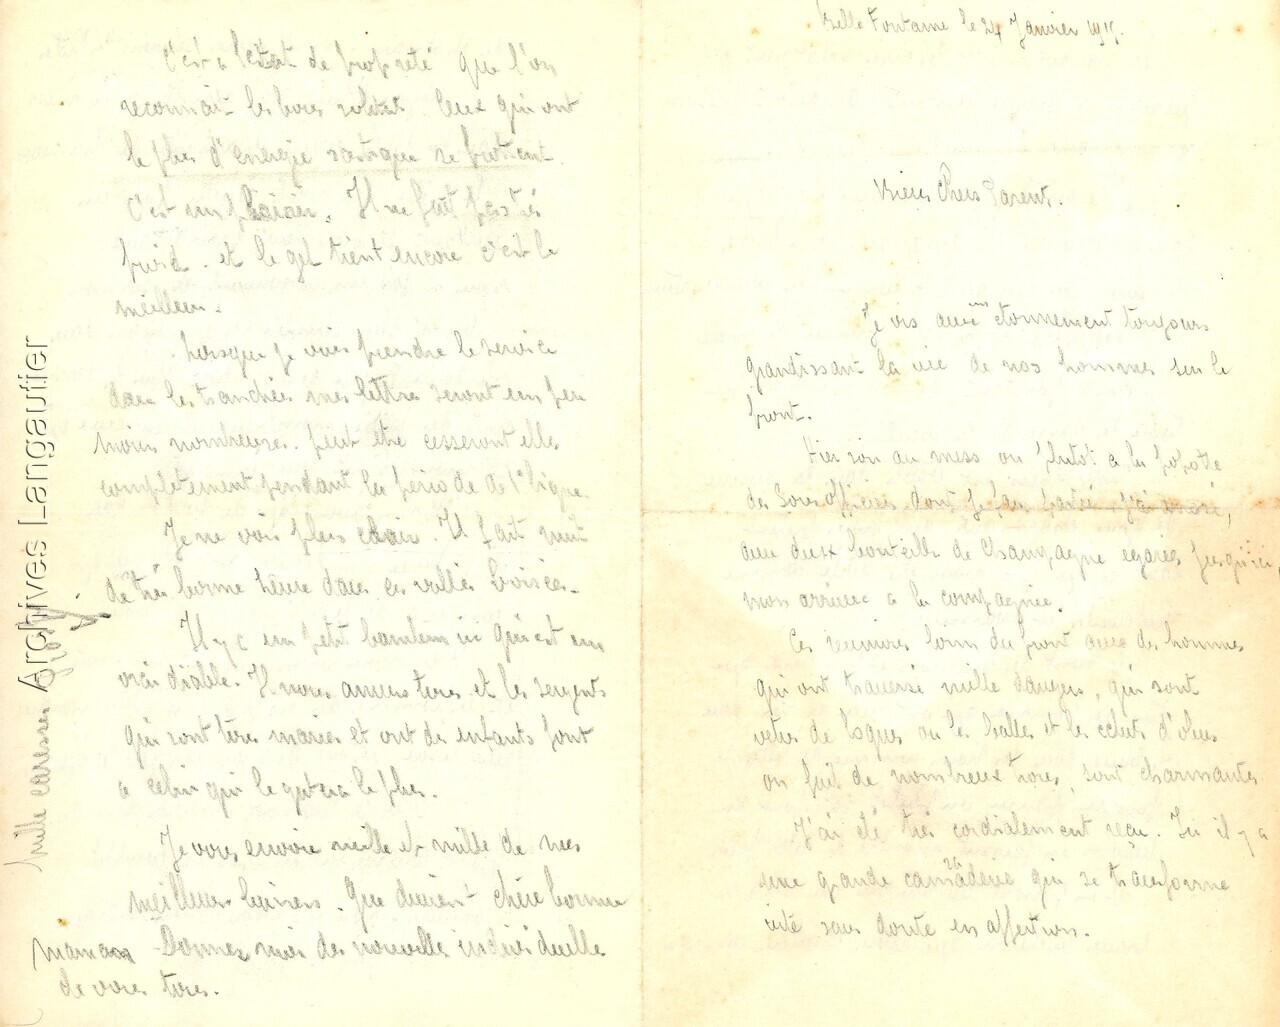 Belle Fontaine le 24 Janvier 1915.
Biens Chers Parent.
Je vis avec un étonnement toujours
grandissant la vie de nos hommes sur le
front.
Hier soir au mess ou plutot a la popotte
des Sous Officiers dont je fais partie j'ai
deux bouteilles de Champagne egarées jusqu'ici
mon arrivée a la compagnie.
Ces reunions loin du front avec des hommes
qui ont traversé mille dangers, qui sont
vetus de loques ou les balles et les eclats d'obus
on fait de nombreux trous, sont charmantes
J'ai été très cordialement reçu. Ici il y a
une grande camaraderie qui se transforme
vite sans doute en affection.
C'est a l'etat de propreté que l'on
reconnait les bons soldat. Ceux qui ont
le plus d'energie
C'est un plaisir. Il ne fait pas très
froid. et le gel tient encore c'est le
meilleur.
Lorsque je vais prendre le service
dans les tranchées mes lettre seront un peu
moins nombreuses. peut être cesseront elle
complètement pendant la periode de 1e ligne.
Je ne vois plus clair. Il fait nuit
de très bonne heure dans ces vallées boisées.
Il y a un petit bambin ici qui est un
vrai diable. Il nous amuse tous et les sergents
qui sont tous mariés et ont des enfants font
a celui qui le gatera le plus.
Je vous envoie mille et mille de mes
meilleurs baisers. Que devient chère bonne
maman Donnez moi des nouvelle individuelle
de vous tous.
Mille caresses
Archives Langautier